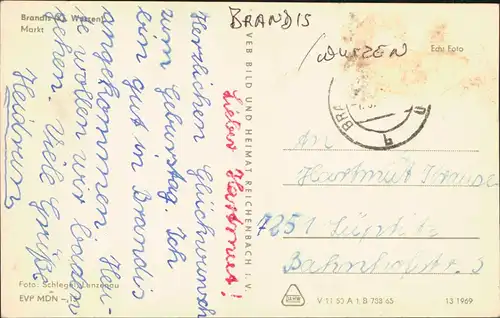 Brandis Kr. Wurzen
Markt
BRANDIS
/WURZEN
Echt Foto
Lieber Hartmut!
Herzlichen Glückwunsch
zum Geburtstag. Ich
bin gut in Brandis
angekommen. Heu-
te wollen wir baden
gehen. Viele Grüße
Heidrun
VEB BILD UND HEIMAT REICHENBACH I. V.
BRA
An
Hartmut Krause
7251 Lüptitz
Bahnhofstr. 3
Foto: Schlegel, Lanzenau
EVP MDN
V 11 50 A 1 B 738 65
13 1969